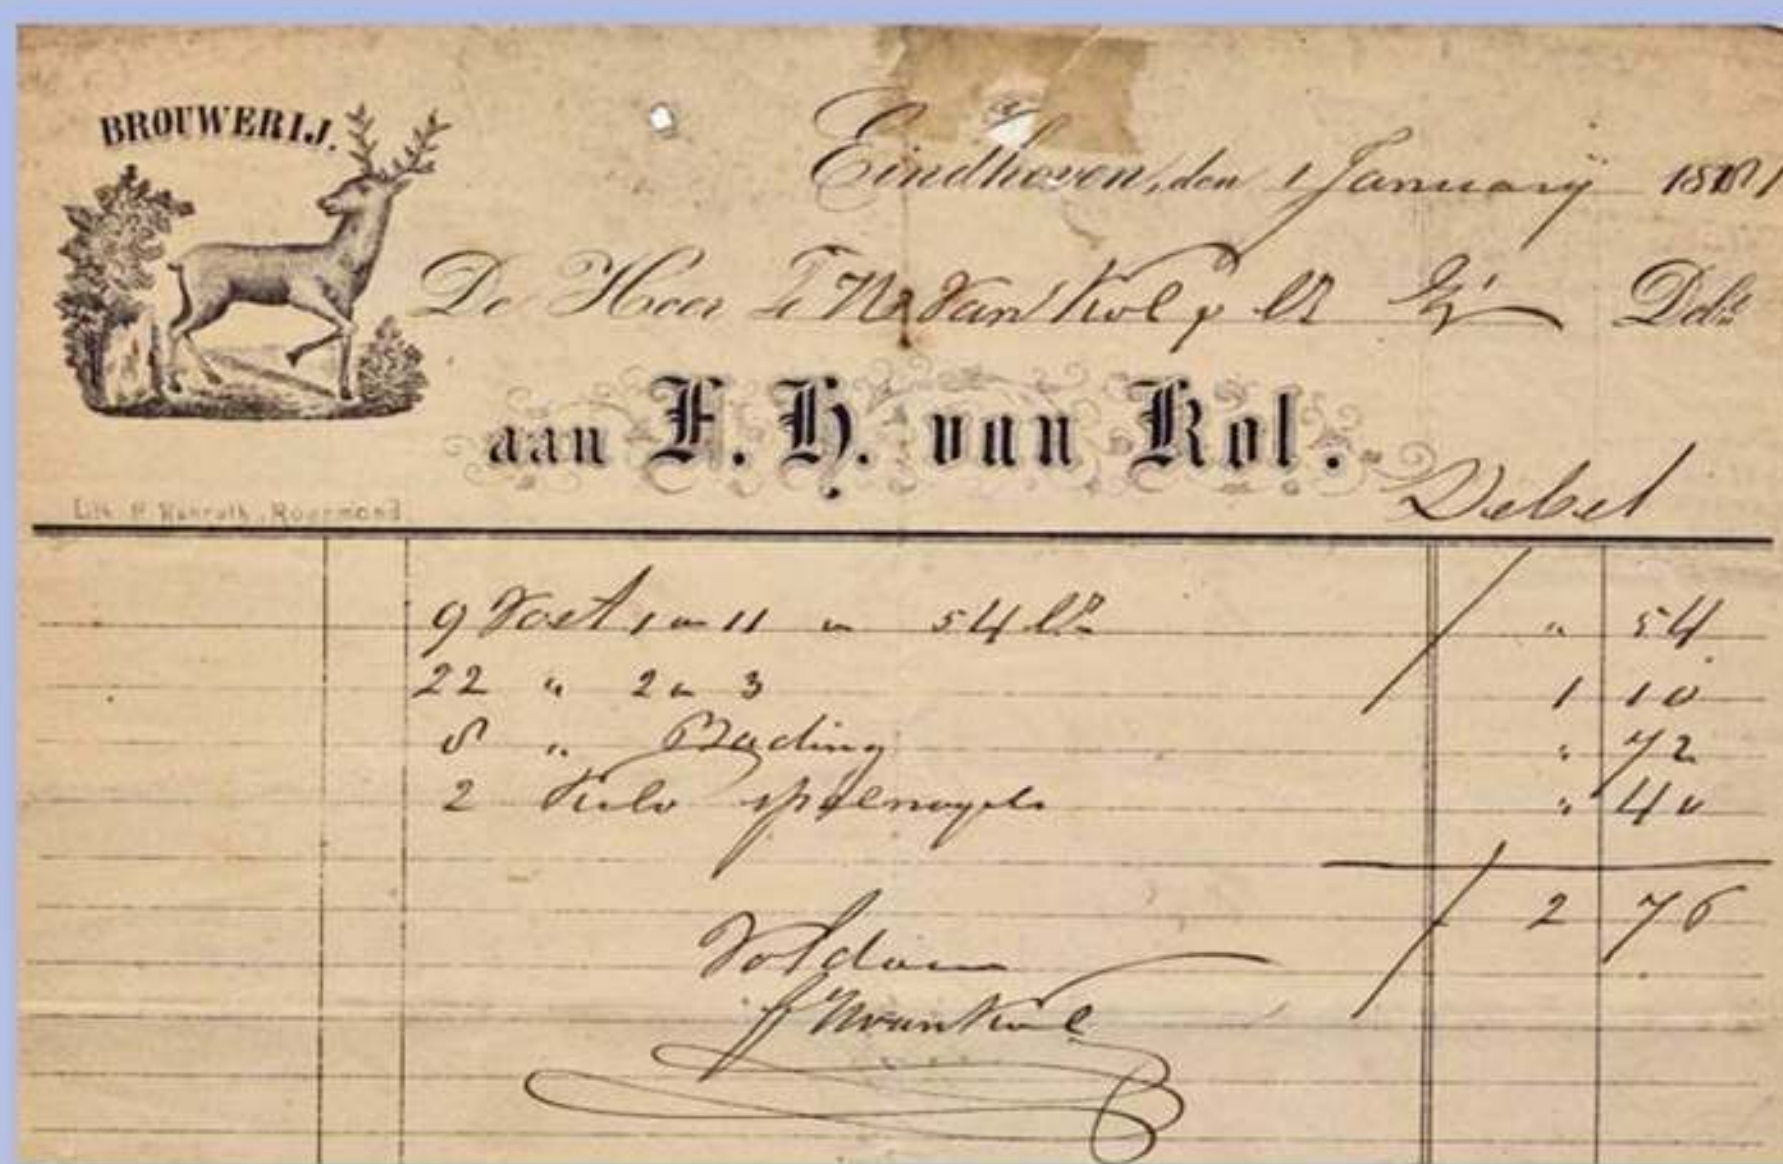 BROUWERIJ.
Eindhoven, den 1 January 1881
De Heer F H van Kol Debt.
aan F. H. van Kol.
Debet
Roermond
9 Voet 1 " 11 " 54 " 54
22 " 2 " 3 1 10
8 " Bading " 72
2 Kilo spilnagels " 40
2 76
Voldaan
FHvanKol